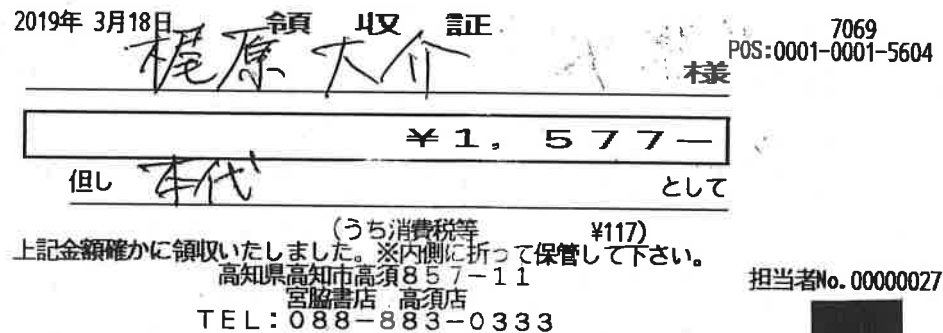 2019年 3月18日 領 収 証 7069
POS:0001-0001-5604
梶原大介 様
¥1, 577−
但し 本代 として
(うち消費税等 ¥117)
上記金額確かに領収いたしました。※内側に折って保管して下さい。
高知県高知市高須857−11
担当者No.00000027
宮脇書店 高須店
TEL:088−883−0333